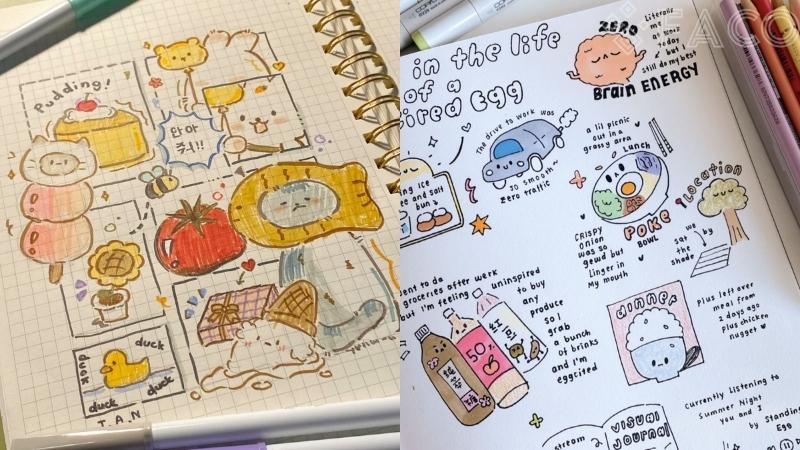 Pudding!
안아
줘!!
duck
duck
duck
duck
T.A.N
in the life
of a
ired Egg
ZERO
Brain ENERGY
Literally
me
at work
today
but I
still do my best
The drive to work was
so smooth~
zero traffic
a lil picnic
out in a
grassy area
LUNCH
POKE
BOWL
Location
we
sat
by
the
shade
CRISPY
onion
was so
gewd but
linger in
my mouth
ing ice
ee and salt
bun
ent to do
groceries after work
but I'm feeling
uninspired
to buy
any
produce
so I
grab
a bunch
of drinks
and I'm
eggcited
50%
dinner
Plus left over
meal from
2 days ago
plus chicken
nugget
Currently listening to
Summer Night
you and I
by Standing
Egg
stream
VISUAL
JOURNAL
FACO